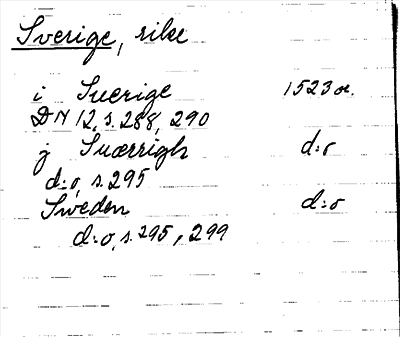 Sverige, rike
i Suerige 1523 or.
DN 12, s. 288, 290
j Suærrigh d:o
d:o, s. 295
Sweden d:o
d:o, s. 295, 299